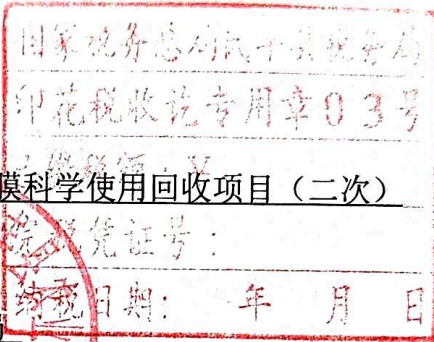 国家税务总局民丰县税务局
印花税收讫专用章03号
￥
膜科学使用回收项目（二次）
完税凭证号：
纳税日期： 年 月 日